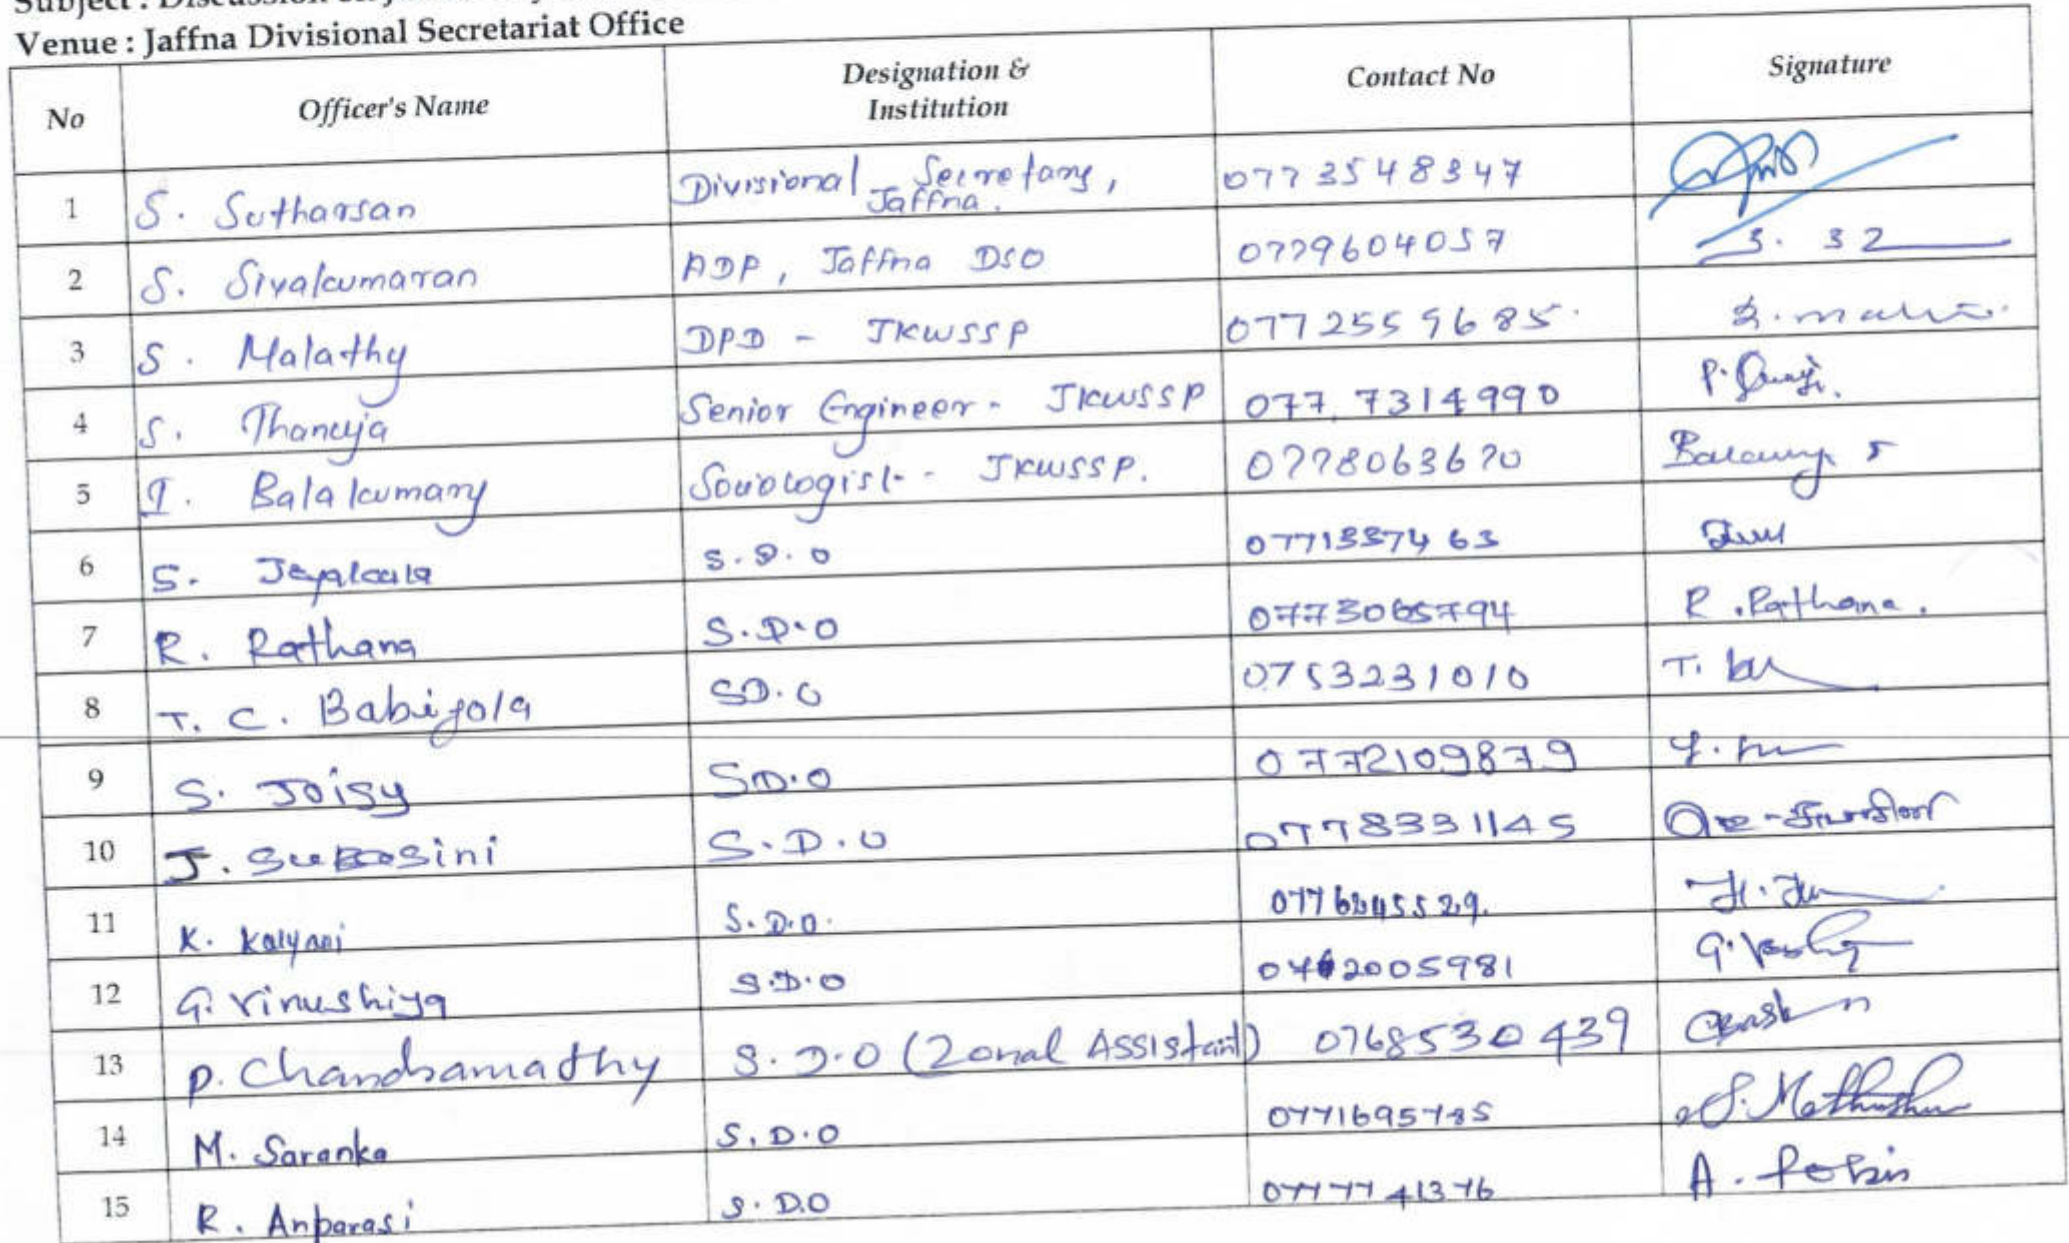 Venue : Jaffna Divisional Secretariat Office
No Officer's Name Designation & Institution Contact No Signature
1 S. Sutharsan Divisional Secretary, Jaffna. 0773548347
2 S. Sivakumaran ADP, Jaffna DSO 0779604057
3 S. Malathy DPD - JKWSSP 0772559685
4 S. Thanuja Senior Engineer - JKWSSP 077 7314990
5 I. Balakumary Sociologist - JKWSSP. 0778063670
6 S. Jeyakala S.D.O 0771337463
7 R. Rathana S.D.O 0773065794 R. Rathana.
8 T. C. Babijola SD.O 0753231010
9 S. Joisy SD.O 0772109879
10 J. Subasini S.D.O 0778331145
11 K. Kalyani S.D.O.
12 G. Vinushiya S.D.O
13 P. Chandramathy S.D.O (Zonal Assistant) 0768530439
14 M. Saranka S.D.O 0771695785
15 R. Anparasi S.D.O 0777741376